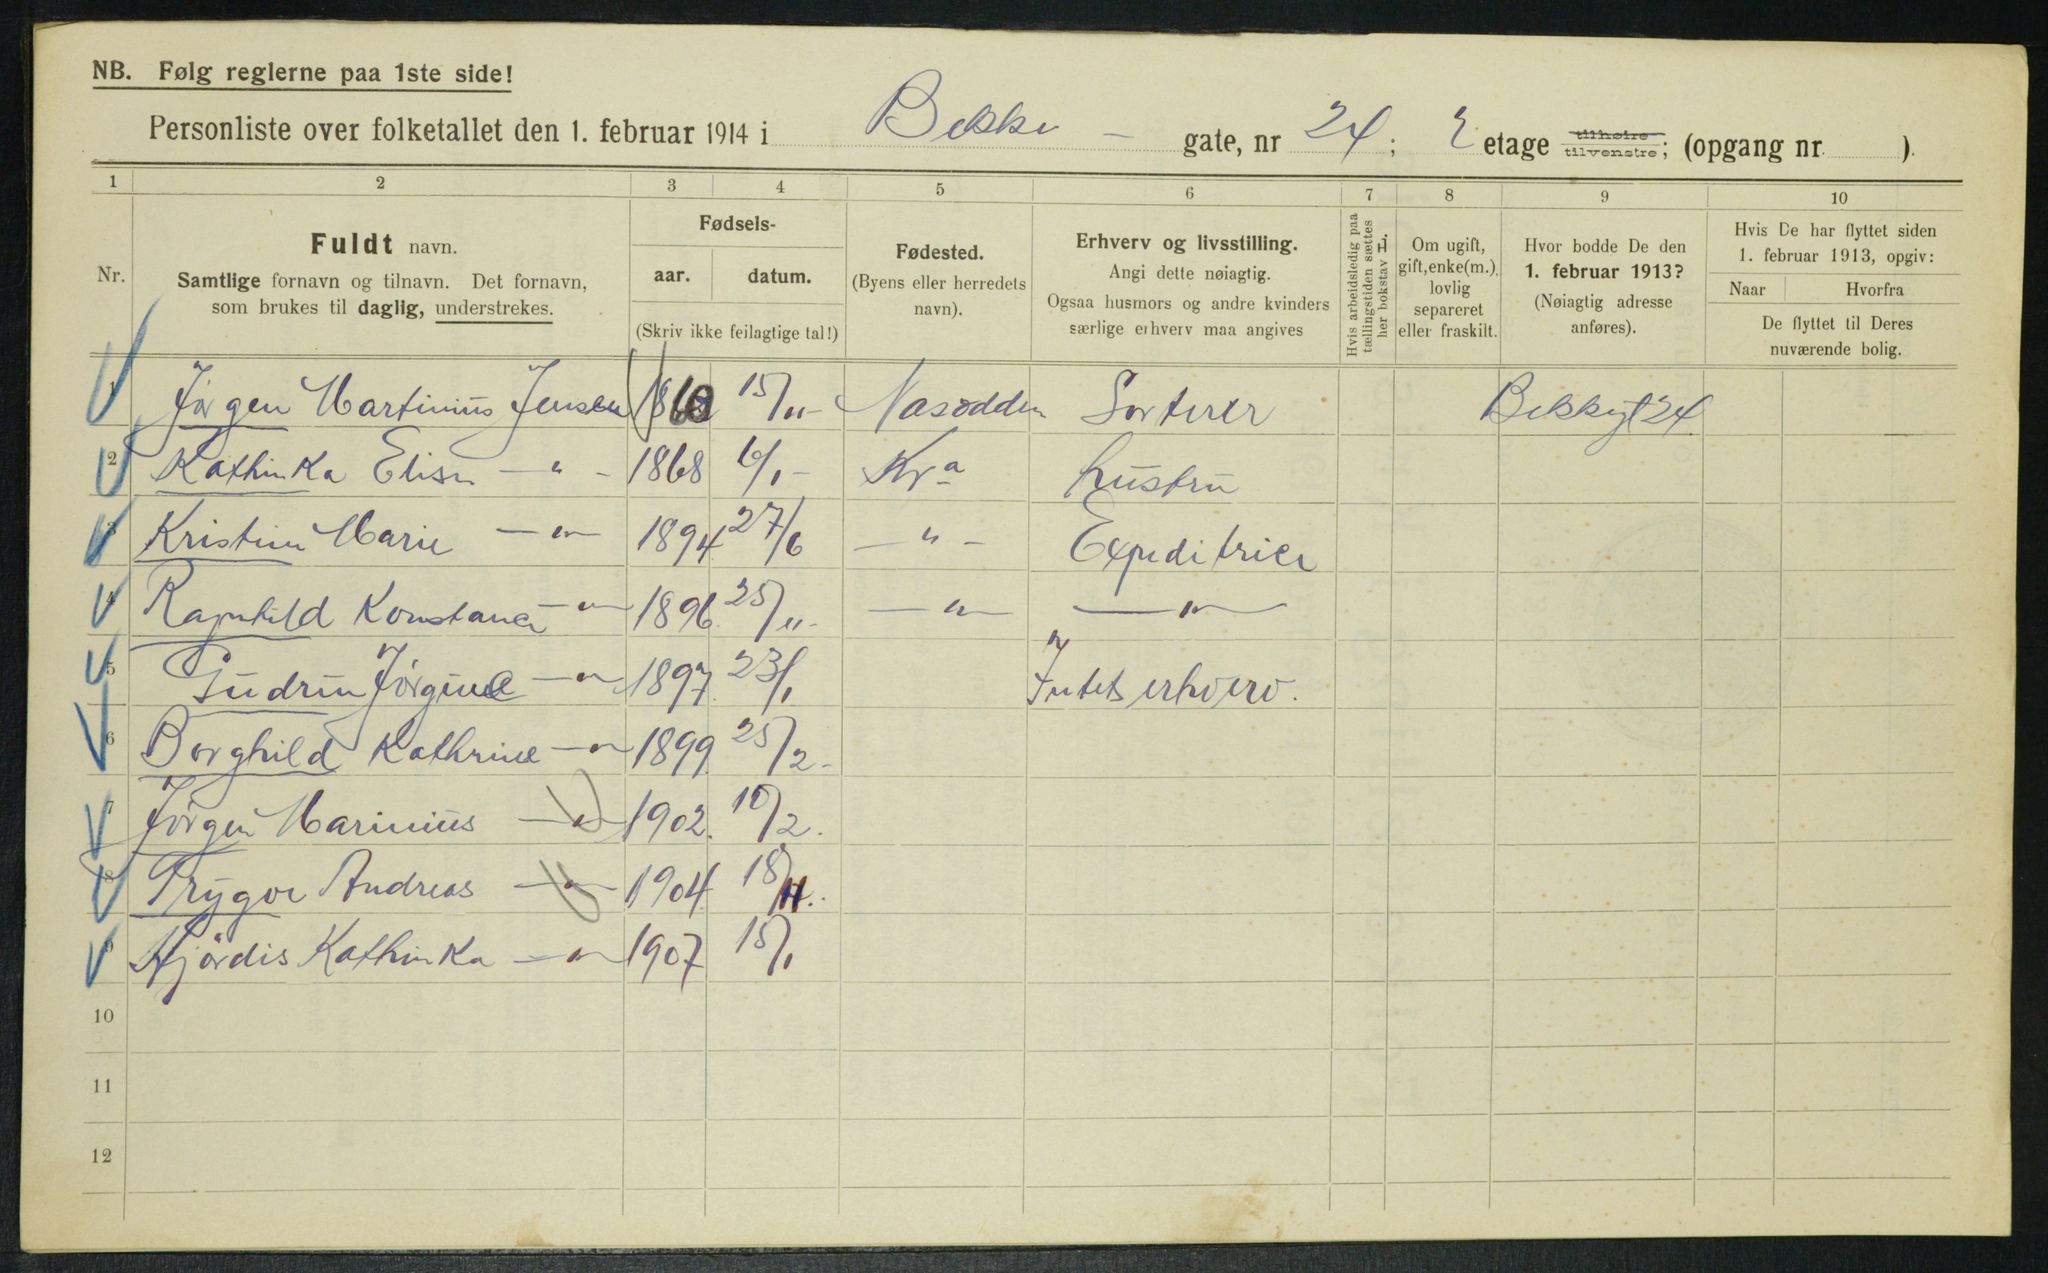 NB. Følg reglerne paa 1ste side!
Personliste over folketallet den 1. februar 1914 i Bekke – gate, nr 24; 2 etage tilhøire tilvenstre; (opgang nr. ).
1 2 3 4 5 6 7 8 9 10
Nr.
Fuldt navn.
Samtlige fornavn og tilnavn. Det fornavn,
som brukes til daglig, understrekes.
Fødsels-
aar. datum.
(Skriv ikke feilagtige tal!)
Fødested.
(Byens eller herredets
navn).
Erhverv og livsstilling.
Angi dette nøiagtig.
Ogsaa husmors og andre kvinders
særlige erhverv maa angives
Hvis arbeidsledig paa
tællingstiden sættes
her bokstav L.
Om ugift,
gift, enke(m.),
lovlig
separeret
eller fraskilt.
Hvor bodde De den
1. februar 1913?
(Nøiagtig adresse
anføres).
Hvis De har flyttet siden
1. februar 1913, opgiv:
Naar Hvorfra
De flyttet til Deres
nuværende bolig.
1 Jørgen Martinius Jensen 1860 15/11- Nasodden Sorterer Bekkegt 24
2 Kathinka Elise — " - 1868 6/1- Kra Hustru
3 Kristine Marie — " — 1894 27/6 — " - Expeditrice
4 Ragnhild Konstance — " — 1896 25/11- — " — — " —
5 Gudrun Jørgine — " — 1897 23/1 Intet erhverv.
6 Borghild Kathrine — " — 1899 25/2-
7 Jørgen Marinius — " — 1902 10/2.
8 Trygve Andreas — " — 1904 18/11.
9 Hjördis Kathinka — " — 1907 15/1
10
11
12